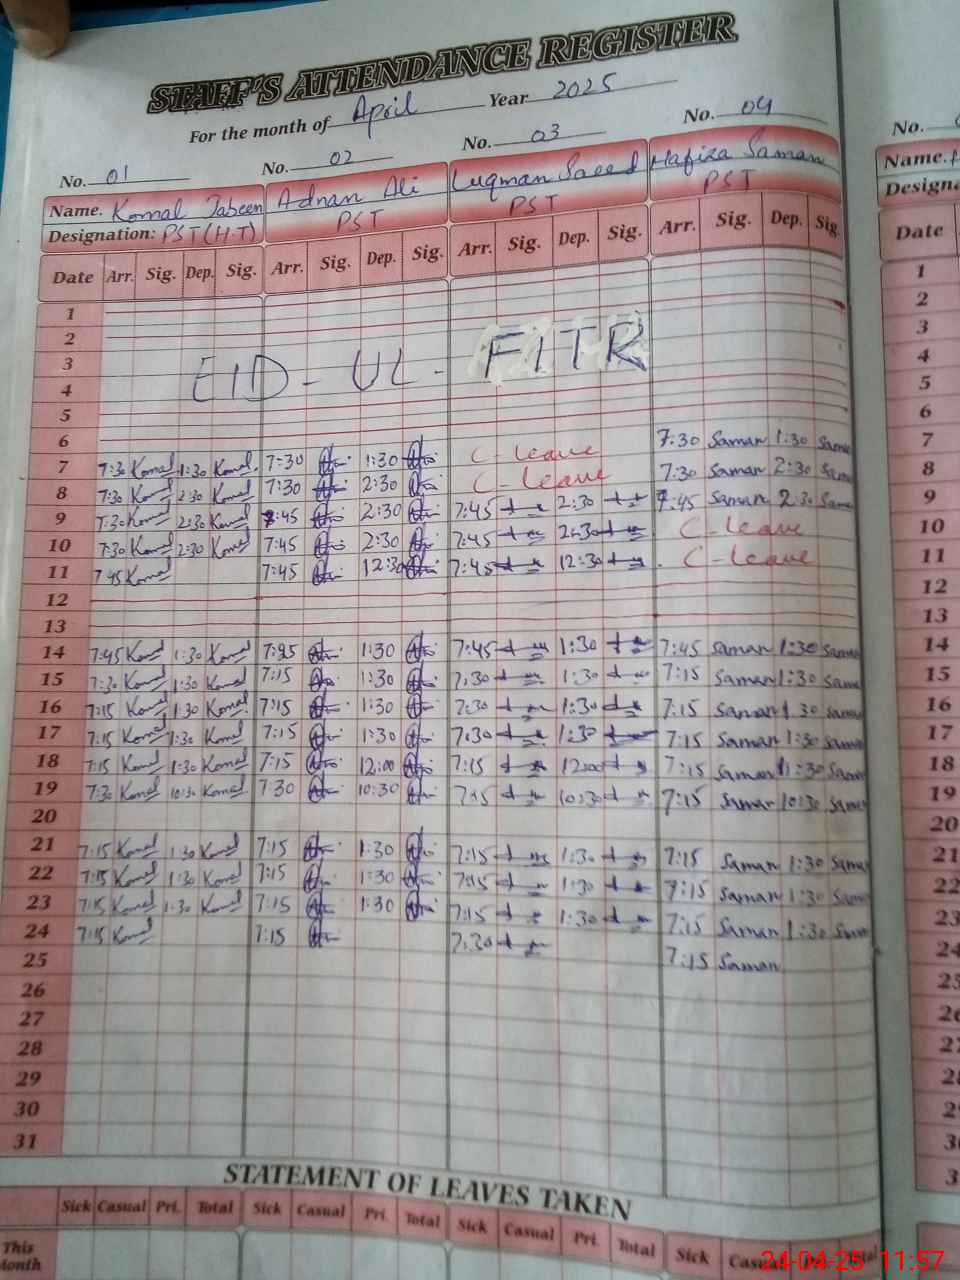 STAFF'S ATTENDANCE REGISTER
For the month of April Year 2025
No. 01 No. 02 No. 03 No. 04 No.
Name. Komal Jabeen Adnan Ali Luqman Saeed Hafiza Saman Name.
Designation: PST (H.T) PST PST PST Design
Date Arr. Sig. Dep. Sig. Arr. Sig. Dep. Sig. Arr. Sig. Dep. Sig. Arr. Sig. Dep. Sig. Date
1 1
2 2
3 EID - UL - FITR 3
4 4
5 5
6 6
7 7:30 Komal 1:30 Komal 7:30 1:30 C-leave 7:30 Saman 1:30 Saman 7
8 7:30 Komal 2:30 Komal 7:30 2:30 C-leave 7:30 Saman 2:30 Saman 8
9 7:30 Komal 2:30 Komal 7:45 2:30 7:45 2:30 7:45 Saman 2:30 Saman 9
10 7:30 Komal 2:30 Komal 7:45 2:30 7:45 2:30 C-leave 10
11 7:45 Komal 7:45 12:30 7:45 12:30 C-leave 11
12 12
13 13
14 7:45 Komal 1:30 Komal 1:30 7:45 1:30 7:45 Saman 1:30 Saman 14
15 7:30 Komal 1:30 Komal 7:15 1:30 7:30 1:30 7:15 Saman 1:30 Saman 15
16 7:15 Komal 1:30 Komal 7:15 1:30 7:30 1:30 7:15 Saman 1:30 Saman 16
17 7:15 Komal 1:30 Komal 7:15 1:30 7:30 1:30 7:15 Saman 1:30 Saman 17
18 7:15 Komal 1:30 Komal 7:15 12:00 7:15 12:00 7:15 Saman 1:30 Saman 18
19 7:30 Komal 10:30 Komal 7:30 10:30 7:15 10:30 7:15 Saman 10:30 Saman 19
20 20
21 7:15 Komal 1:30 Komal 7:15 1:30 7:15 1:30 7:15 Saman 1:30 Saman 21
22 7:15 Komal 1:30 Komal 7:15 1:30 7:15 1:30 7:15 Saman 1:30 Saman 22
23 7:15 Komal 1:30 Komal 7:15 1:30 7:15 1:30 7:15 Saman 1:30 Saman 23
24 7:15 Komal 7:15 7:30 7:15 Saman 24
25 25
26 26
27 27
28 28
29 29
30 30
31 3
STATEMENT OF LEAVES TAKEN
Sick Casual Pri. Total Sick Casual Pri. Total Sick Casual Pri. Total Sick Casual Total
This
Month
24-04-25 11:57